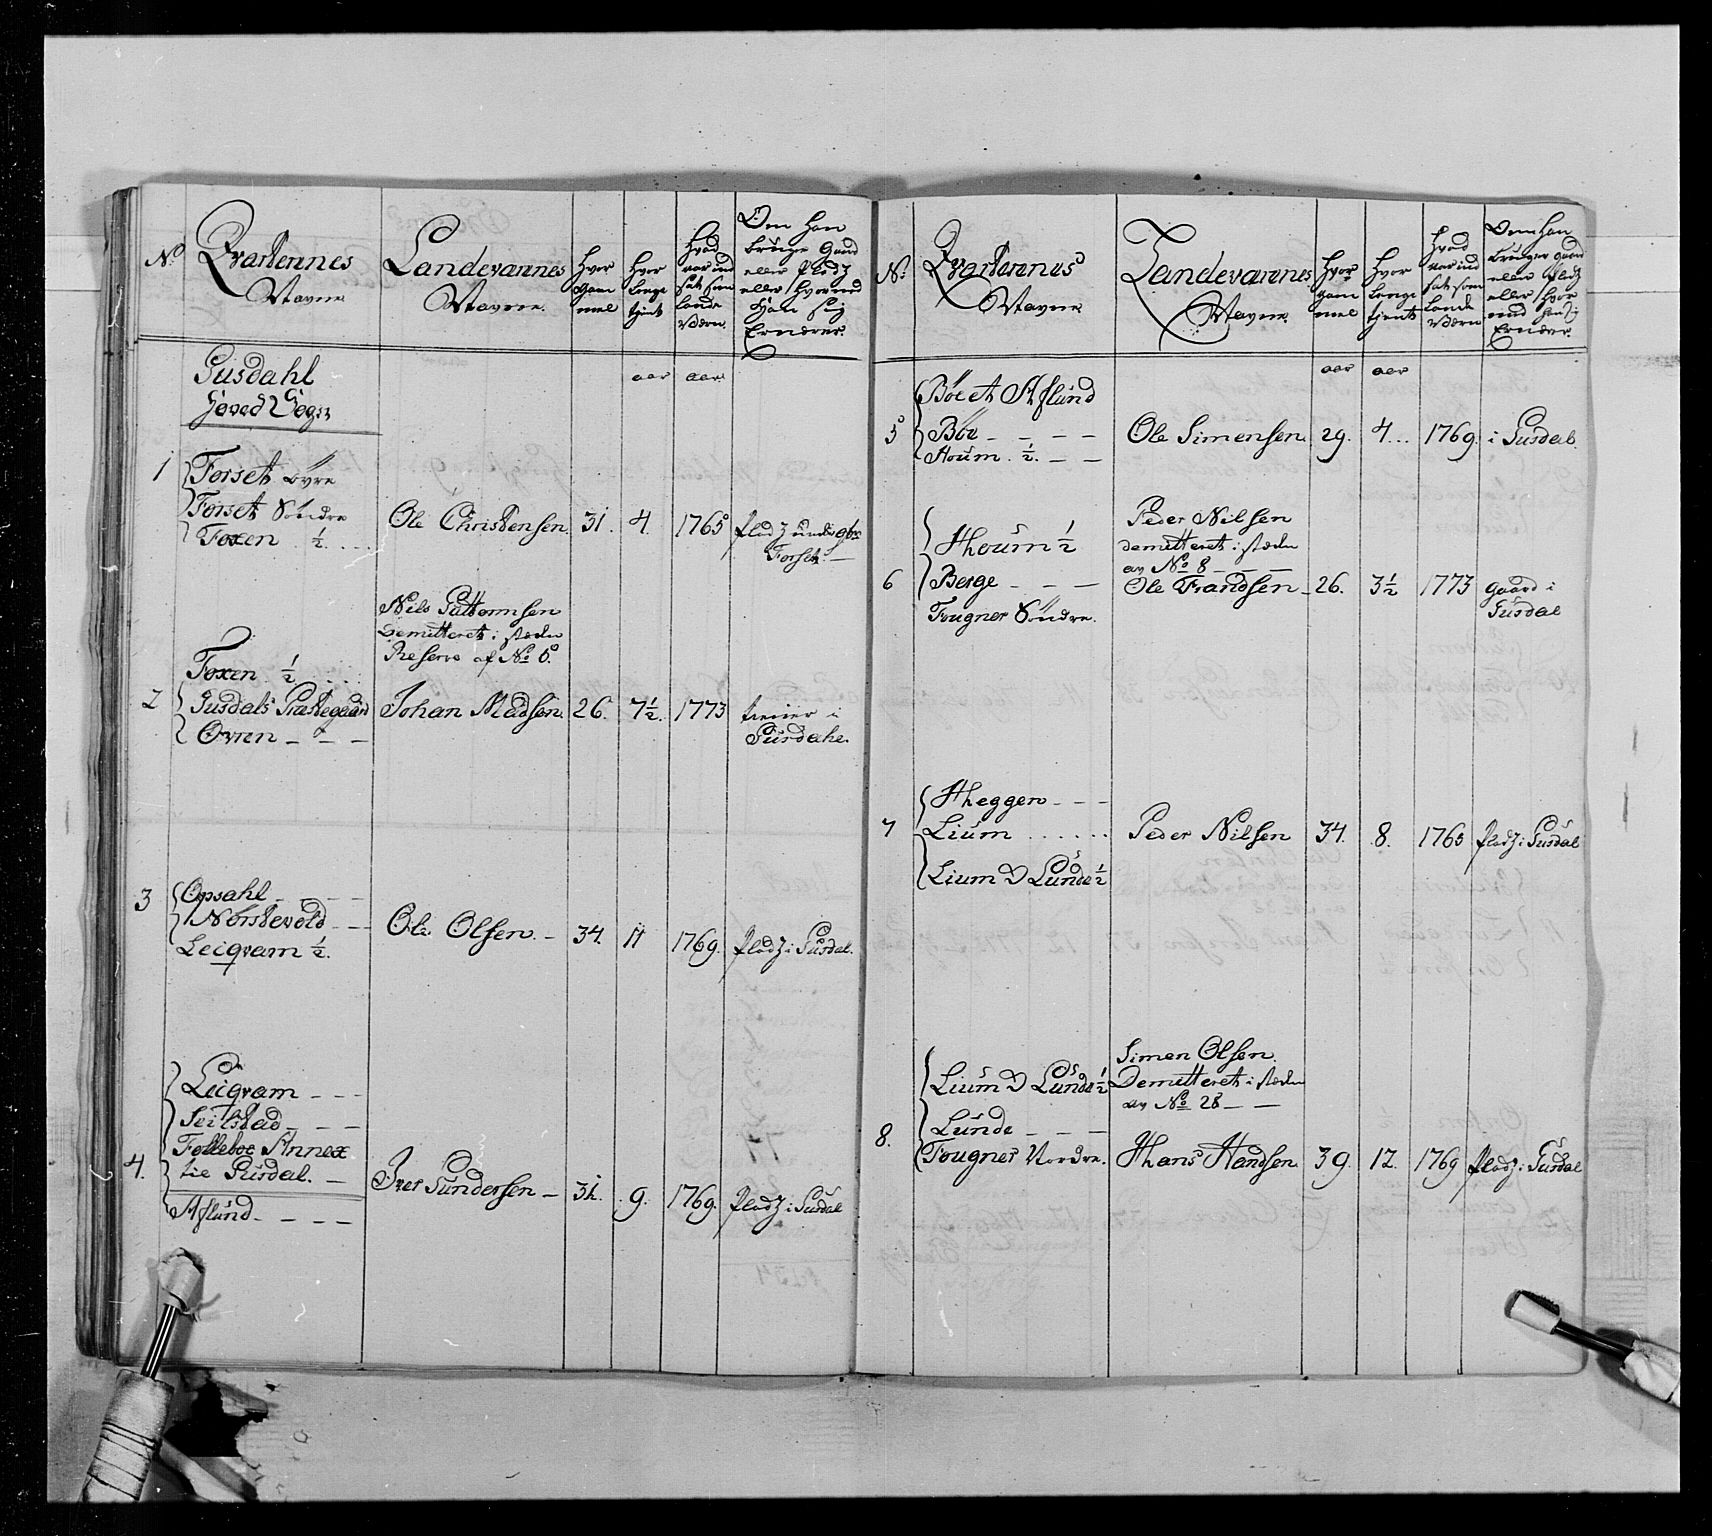 No
Qvarterernes
Navne
Landeværnes
Navne.
Hvor
gam
mel
Hvor
lenge
tient
Hvad
aar ind
sat som
Lande
Værn.
Om Han
bruger Gaard
eller Pladz
eller hvormed
Han sig
Ernærer.
Gusdahl
Hoved Sogn
aar aar
1
Forset øvre
Forset Söndre
Foxen ½
Ole Christensen 31. 4. 1765 Pladz under
Forset
Nils Guttormsen
Demitteret i stæden
Reserve af No 6.
2
Foxen ½
Gusdals Præstegaard
Øvren
Johan Madsen. 26. 7½. 1773
i
Gusdahl.
3
Opsahl
Nørstevold
Leiqvam ½.
Ole Olsen. 34. 11 1769. Pladz i Gusdal.
4.
Leiqvam
Seilstad
Folleboe Annex
til Gusdal.
Aflund.
Iver Gundersen 31. 9. 1769. Pladz i Gusdal
No
Qvarterernes
Navne
Landeværnes
Navne.
Hvor
gam
mel
Hvor
lenge
tient
Hvad
aar ind
sat som
Lande
Værn
Om Han
bruger Gaard
eller Pladz
eller hvor
med Han sig
Ernærer.
aar aar
5
Böe et Aflund
Böe
Houm. ½.
Ole Simensen. 29. 4. 1769. i Gusdal.
6
Houm ½
Berge
Fougner Söndre.
Peder Nilsen
demitteret i stæden
av No 8
Ole Frandsen 26. 3½ 1773 gaard i
Gusdal
7
Heggen
Lium
Lium & Lunde ½
Peder Nilsen 34. 8. 1765 Pladz i Gusdal
8.
Lium & Lunde ½
Lunde
Fougner Nordre.
Simen Olsen.
Demitteret i stæden
av No 28
Hans Handsen 39. 12. 1769 Pladz i Gusdal